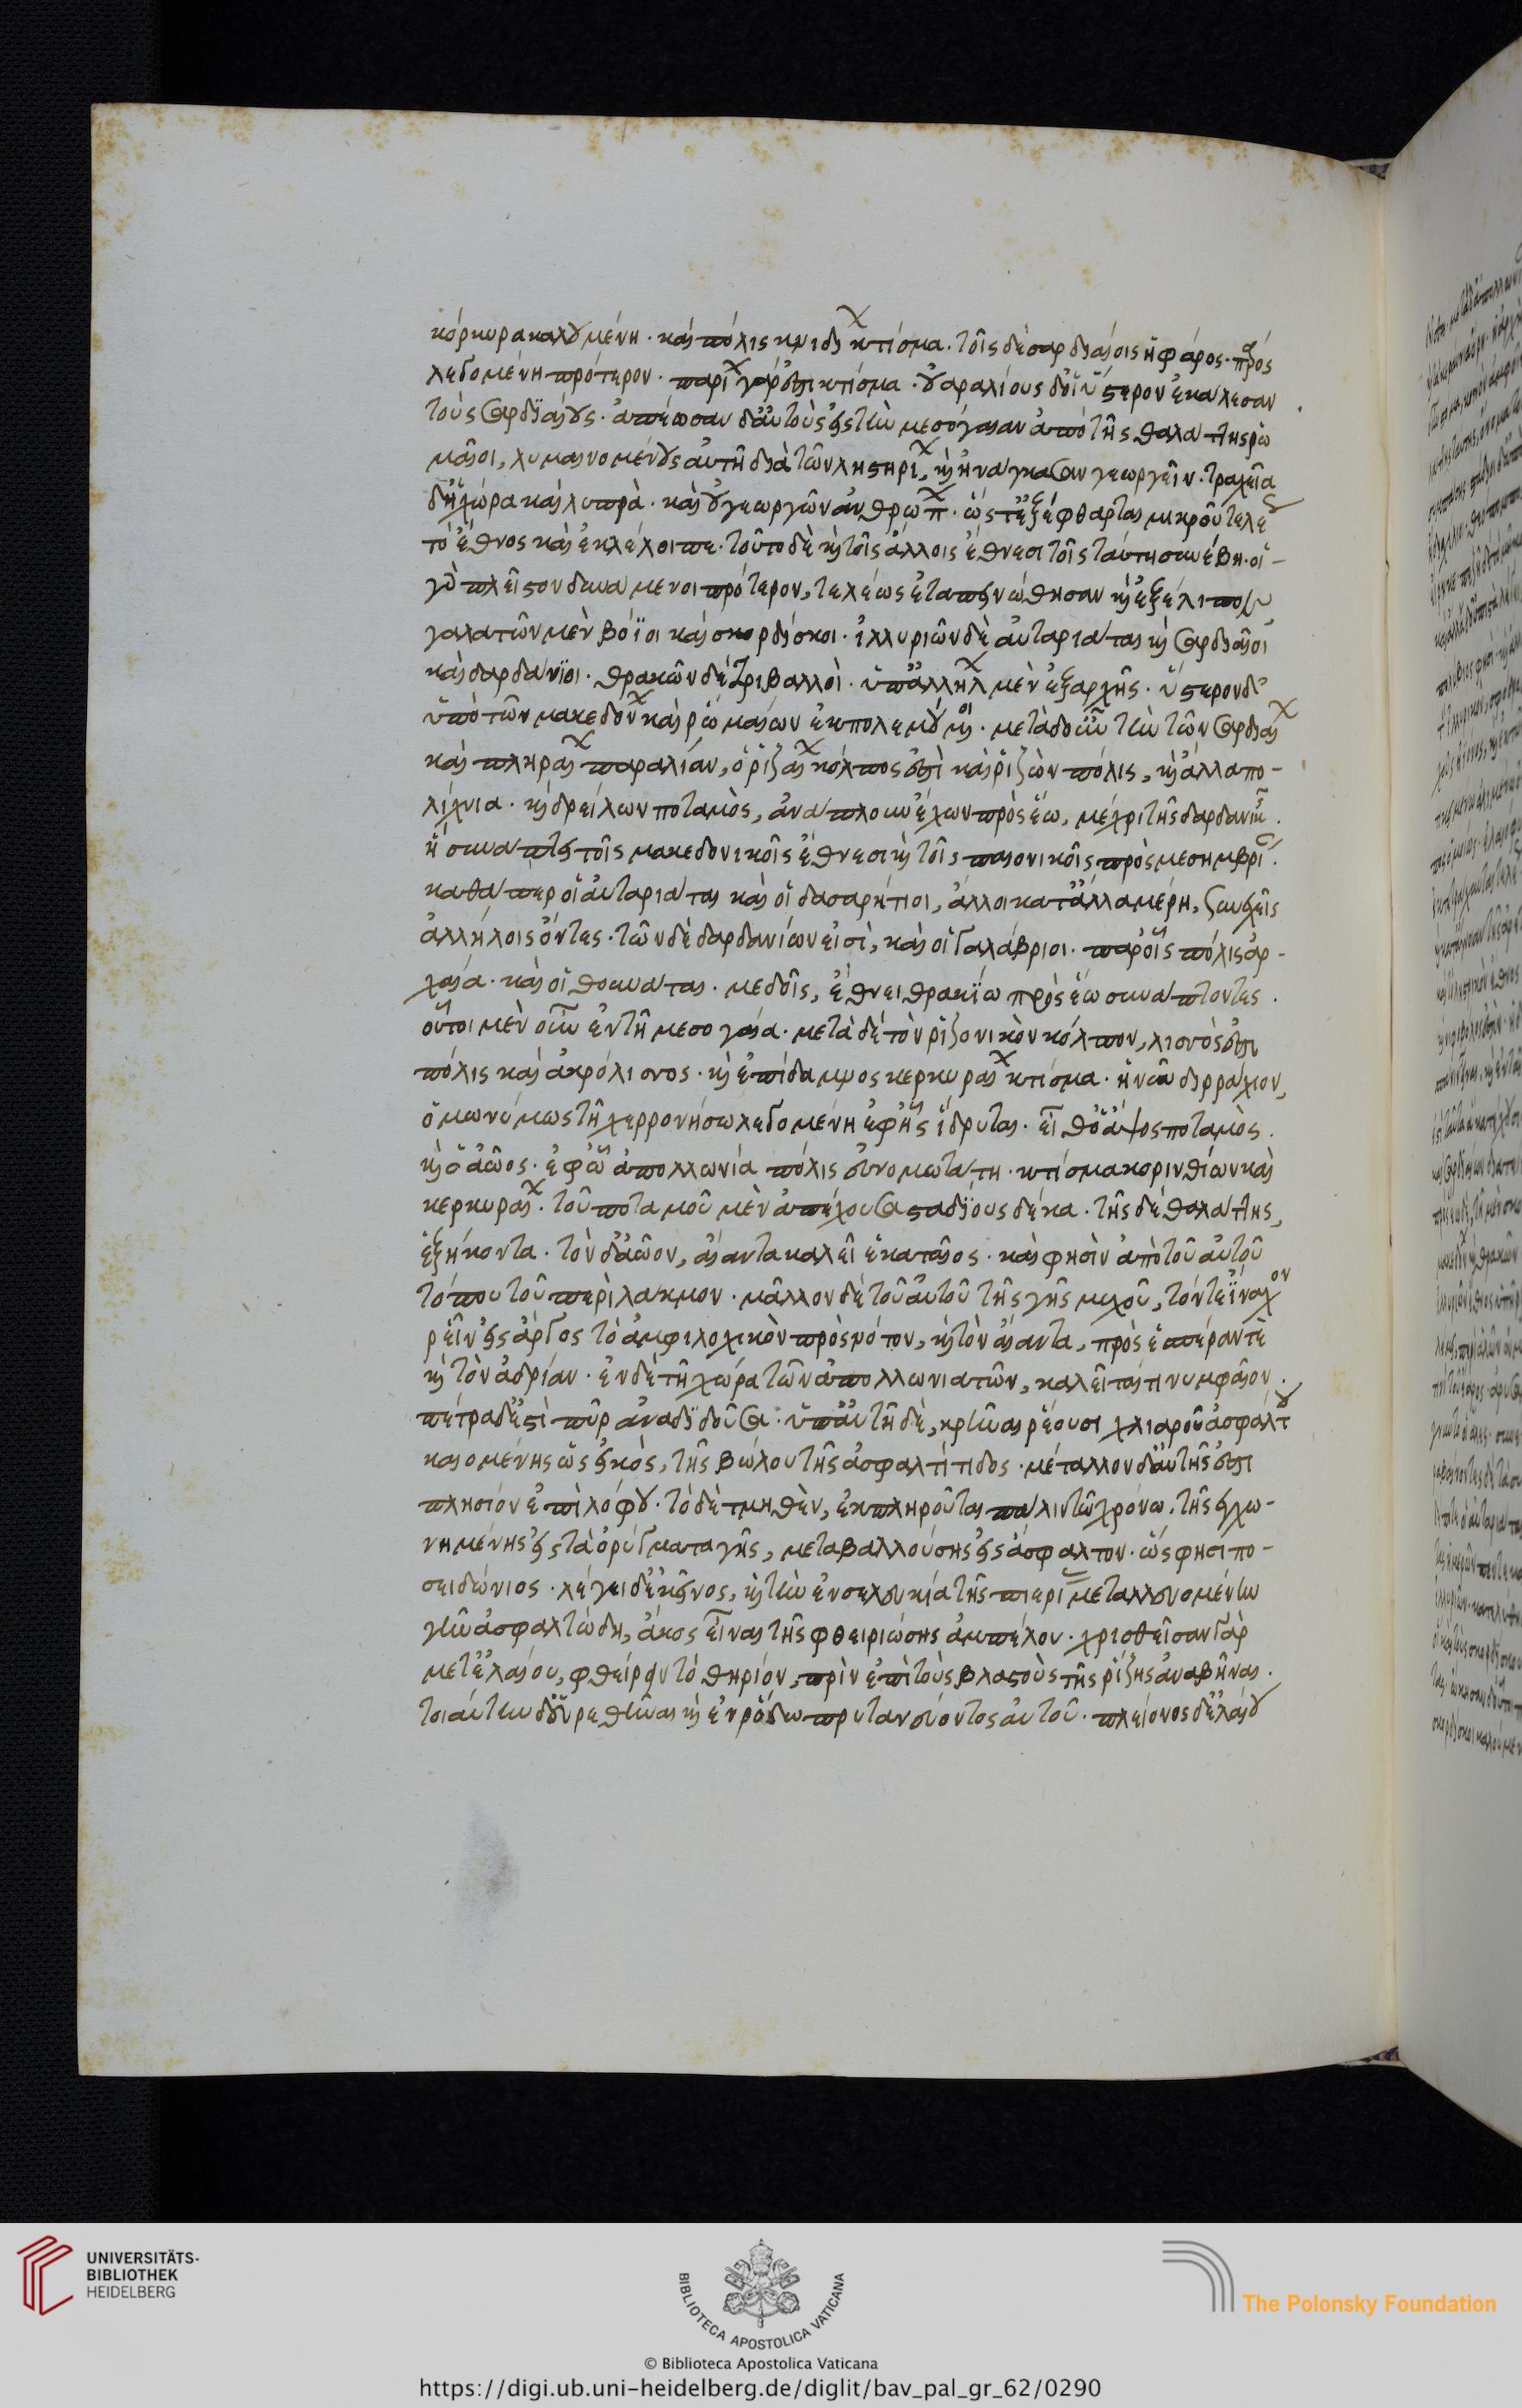 κόρκυρα καλουμένη· καὶ πόλις κνιδίων κτίσμα. τοῖς δὲ σαρδιαίοις ἡ φάρος· πάρος
λεγομένη πρότερον· παρίων γάρ ἐστι κτίσμα· οὐαραλίους δ' οἱ ὕστερον ἐκάλεσαν
τοὺς σαρδιαίους· ἀπέωσαν δ' αὐτοὺς εἰς τὴν μεσόγαιαν ἀπὸ τῆς θαλάττης ῥω
μαῖοι, λυμαινομένους αὐτῇ διὰ τῶν ληστηρίων, καὶ ἠνάγκασαν γεωργεῖν. τραχεῖα
δὲ ἡ χώρα καὶ λυπρὰ· καὶ οὐ γεωργῶν ἀνθρώπων· ὥστ' ἐξέφθαρται μικροῦ τελέως
τὸ ἔθνος καὶ ἐκλέλοιπε· τοῦτο δὲ καὶ τοῖς ἄλλοις ἔθνεσι τοῖς ταύτῃ συνέβη· οἱ
γὰρ πλεῖστον δυνάμενοι πρότερον, τελέως ἐταπεινώθησαν καὶ ἐξέλιπον
γαλατῶν μὲν βόϊοι καὶ σκορδίσκοι· ἰλλυριῶν δὲ αὐταριάται καὶ σαρδιαῖοι
καὶ δαρδάνιοι· θρακῶν δὲ τριβαλλοὶ· ὑπ' ἀλλήλων μὲν ἐξαρχῆς· ὕστερον δ'
ὑπὸ τῶν μακεδόνων καὶ ῥωμαίων ἐκπολεμούμενοι· μετὰ δ' οὖν τὴν τῶν σαρδιαίων
καὶ πληραίων παραλίαν, ὁ ῥιζαίων κόλπος ἐστὶ καὶ ῥιζὼν πόλις, καὶ ἄλλα πο-
λίχνια· καὶ δρείλων ποταμὸς, ἀνάπλουν ἔχων πρὸς ἕω, μέχρι τῆς δαρδανικῆς.
ἣ συνάπτει τοῖς μακεδονικοῖς ἔθνεσι καὶ τοῖς παιονικοῖς πρὸς μεσημβρίαν.
καθάπερ οἱ αὐταριάται καὶ οἱ δασαρήτιοι, ἄλλοι κατ' ἄλλα μέρη, συνεχεῖς
ἀλλήλοις ὄντες· τῶν δὲ δαρδανίων εἰσὶ, καὶ οἱ γαλάβριοι· παρ' οἷς πόλις ἀρ-
χαία· καὶ οἱ θουνάται· μεδοῖς, ἔθνει θρακίω πρὸς ἕω συνάπτοντες.
οὗτοι μὲν οὖν ἐν τῇ μεσογαία· μετὰ δὲ τὸν ῥιζονικὸν κόλπον, λισσός ἐστι
πόλις καὶ ἀκρόλισσος· καὶ ἐπίδαμνος κερκυραίων κτίσμα· ἡ νῦν δυρράχιον,
ὁμωνύμως τῇ χερρονήσω λεγομένη ἐφ' ἧς ἵδρυται· εἶθ' ὁ ἄψος ποταμὸς.
καὶ ὁ ἄωος· ἐφ' ᾧ ἀπολλωνία πόλις εὐνομωτάτη· κτίσμα κορινθίων καὶ
κερκυραίων. τοῦ ποταμοῦ μὲν ἀπέχουσα σταδίους δέκα· τῆς δὲ θαλάττης,
ἑξήκοντα· τὸν δ' ἄωον, αἴαντα καλεῖ ἑκαταῖος· καὶ φησὶν ἀπὸ τοῦ αὐτοῦ
τόπου τοῦ περὶ λάκμον· μᾶλλον δὲ τοῦ αὐτοῦ τῆς γῆς μυχοῦ, τόν τε ἴναχον
ῥεῖν εἰς ἄργος τὸ ἀμφιλοχικὸν πρὸς νότον, καὶ τὸν αἴαντα, πρὸς ἑσπέραν τὲ
καὶ τὸν ἀδρίαν· ἐν δὲ τῇ χώρα τῶν ἀπολλωνιατῶν, καλεῖται τι νυμφαῖον.
πέτρα δ' ἐστὶ πῦρ ἀναδιδοῦσα· ὑπ' αὐτῇ δὲ, κρῆναι ῥέουσι χλιαροῦ ἀσφάλτου
καιομένης ὡς εἰκὸς, τῆς βώλου τῆς ἀσφαλτίτιδος· μέταλλον δ' αὐτῆς ἐστι
πλησίον ἐπὶ λόφου· τὸ δὲ τμηθὲν, ἐκπληροῦται πάλιν τῷ χρόνω· τῆς ἐγχω-
νημένης εἰς τὰ ὀρύγματα γῆς, μεταβαλλούσης εἰς ἄσφαλτον· ὥς φησι πο-
σειδώνιος· λέγει δ' ἐκεῖνος, καὶ τὴν ἐν σελευκία τῆς πιερίας μεταλλευομένην
γῆν ἀσφαλτώδη, ἄκος εἶναι τῆς φθειριώσης ἀμπέλου· χρισθεῖσαν γὰρ
μετ' ἐλαίου, φθείρειν τὸ θηρίον, πρὶν ἐπὶ τοὺς βλαστοὺς τῆς ῥίζης ἀναβῆναι.
τοιαύτην δ' εὑρεθῆναι καὶ ἐν ῥόδω πρυτανεύοντος αὐτοῦ· πλείονος δ' ἐλαίου
UNIVERSITÄTS-
BIBLIOTHEK
HEIDELBERG
BIBLIOTECA APOSTOLICA VATICANA
The Polonsky Foundation
© Biblioteca Apostolica Vaticana
https://digi.ub.uni-heidelberg.de/diglit/bav_pal_gr_62/0290